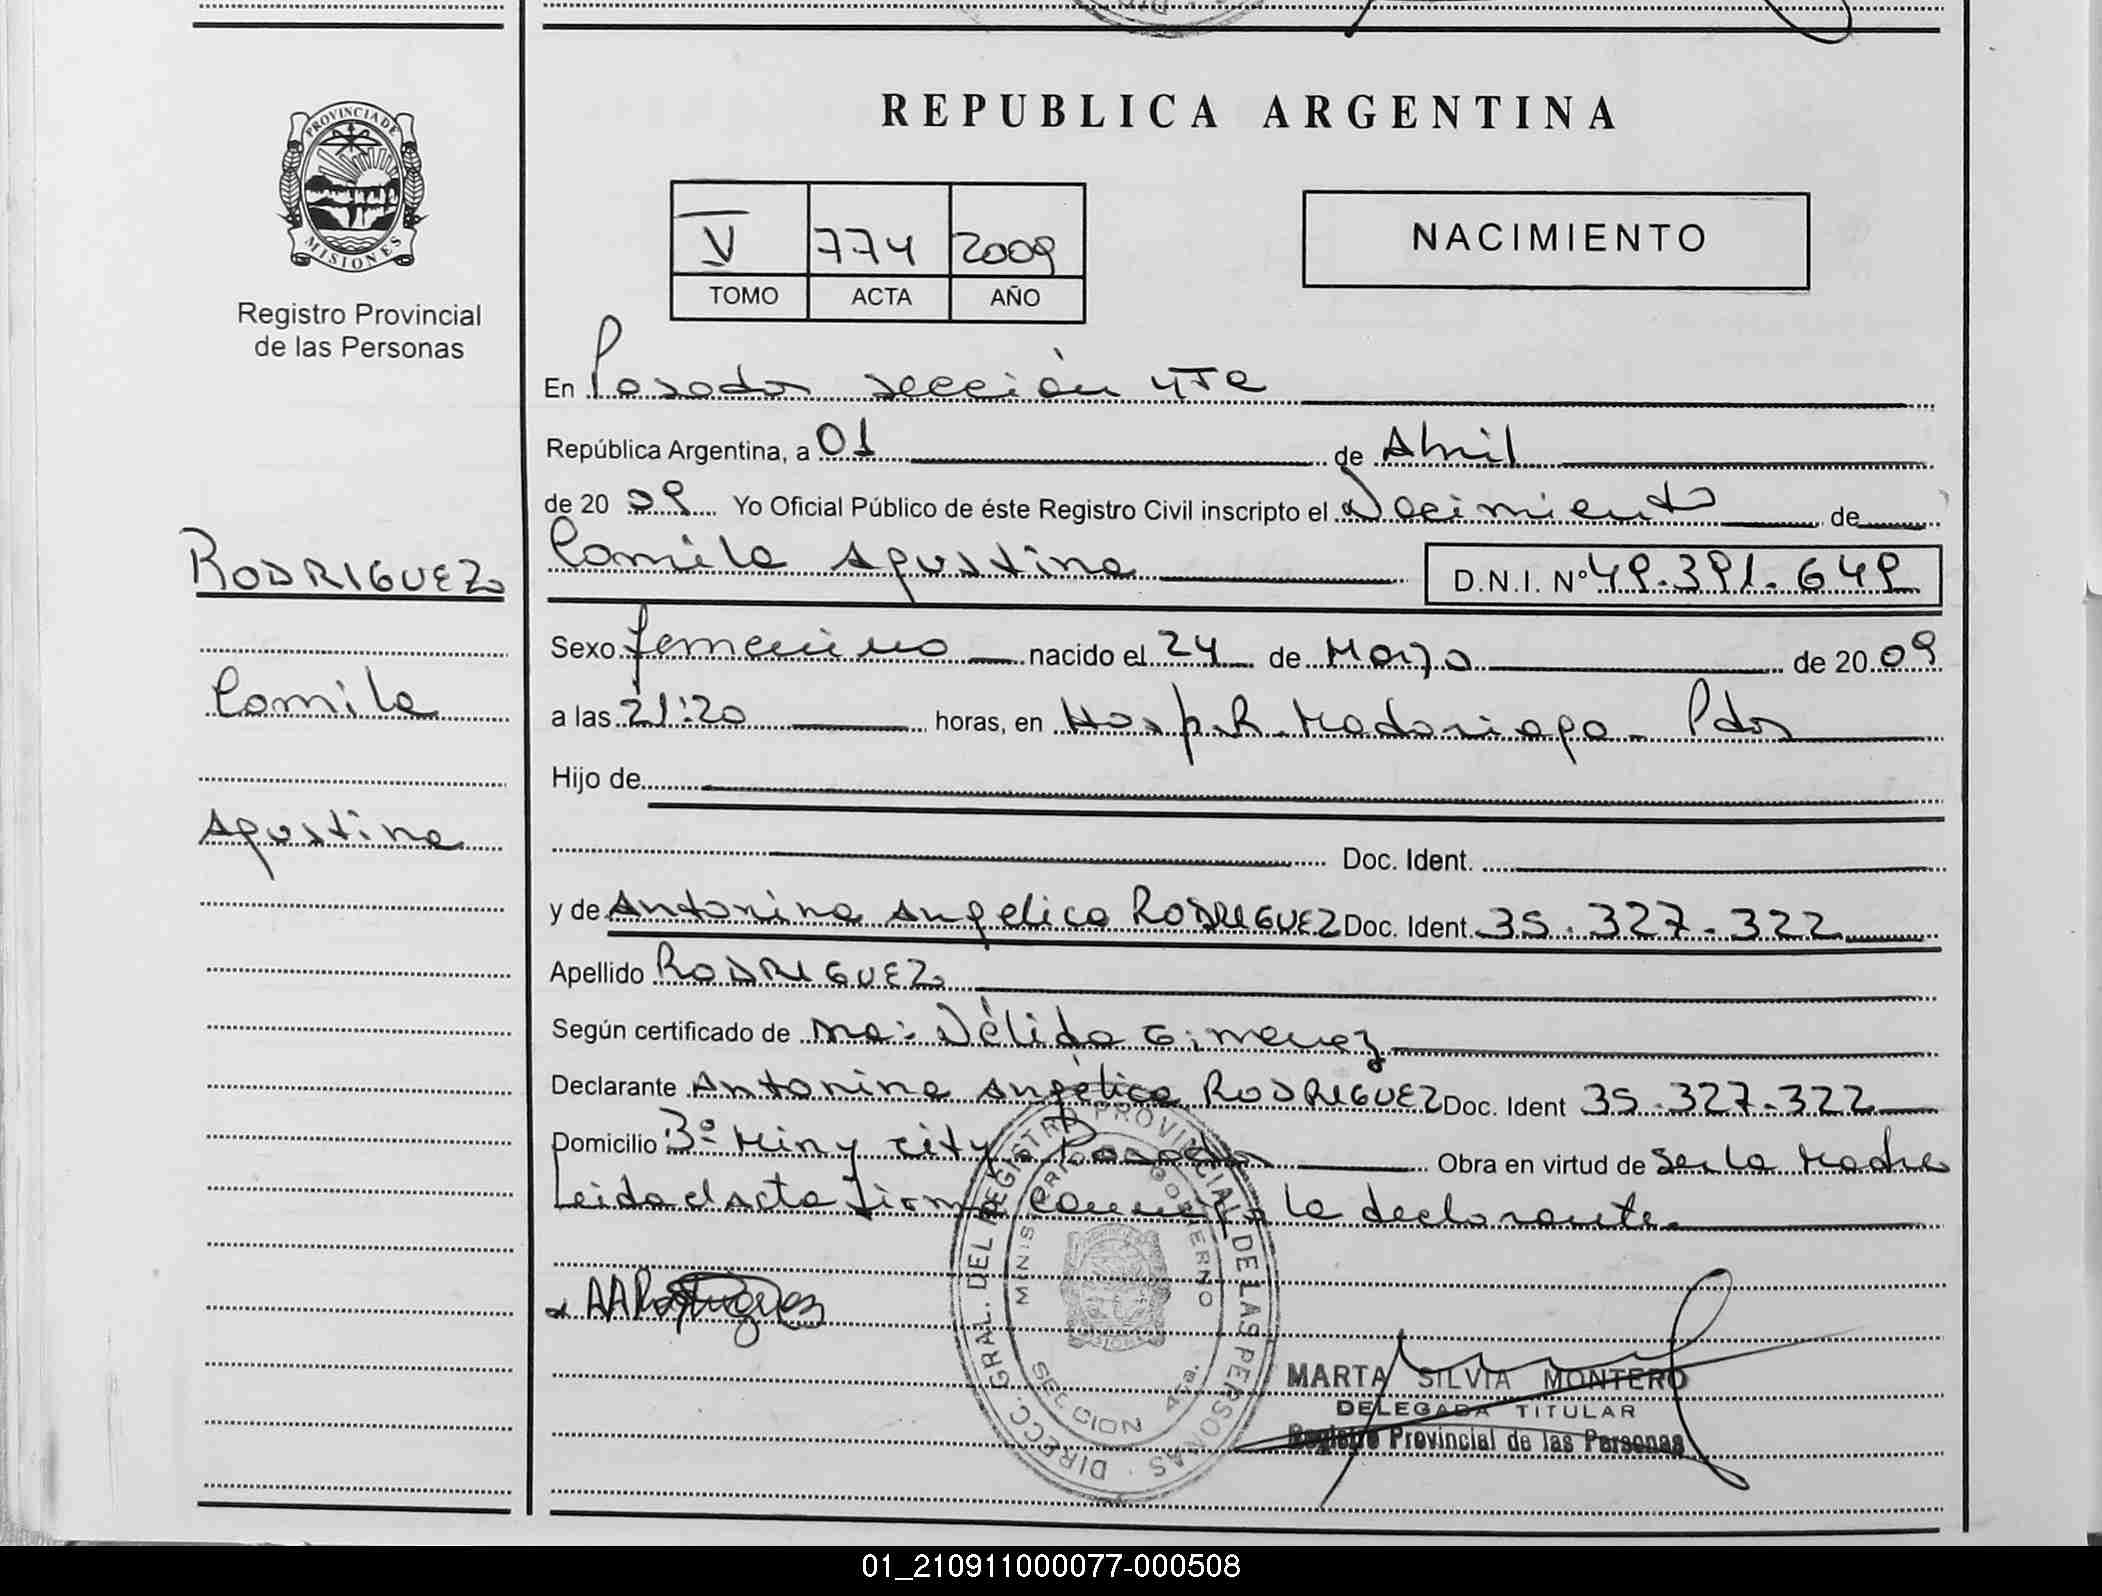 REPUBLICA ARGENTINA
PROVINCIA DE MISIONES
Registro Provincial
de las Personas
V 774 2009
TOMO ACTA AÑO
NACIMIENTO
En Posadas sección 4ta
República Argentina, a 01 de Abril
de 20 09 Yo Oficial Público de éste Registro Civil inscripto el Nacimiento de
Camila Agustina D.N.I. Nº 49.391.649
RODRIGUEZ
Camila
Agustina
Sexo femenino nacido el 24 de Marzo de 20 09
a las 21:20 horas, en Hosp. R. Madariaga - Pdas
Hijo de
Doc. Ident.
y de Antonina Angelica RODRIGUEZ Doc. Ident. 35.327.322
Apellido RODRIGUEZ
Según certificado de Ma: Nélida Gimenez
Declarante Antonina Angélica RODRIGUEZ Doc. Ident 35.327.322
Domicilio Bº Miny city Posadas Obra en virtud de Ser la Madre
Leida el acta firma conmigo la declarante
AARodriguez
DIRECC. GRAL. DEL REGISTRO PROVINCIAL DE LAS PERSONAS
GOBIERNO
SECCION 4ta.
MARTA SILVIA MONTERO
DELEGADA TITULAR
Registro Provincial de las Personas
01_210911000077-000508